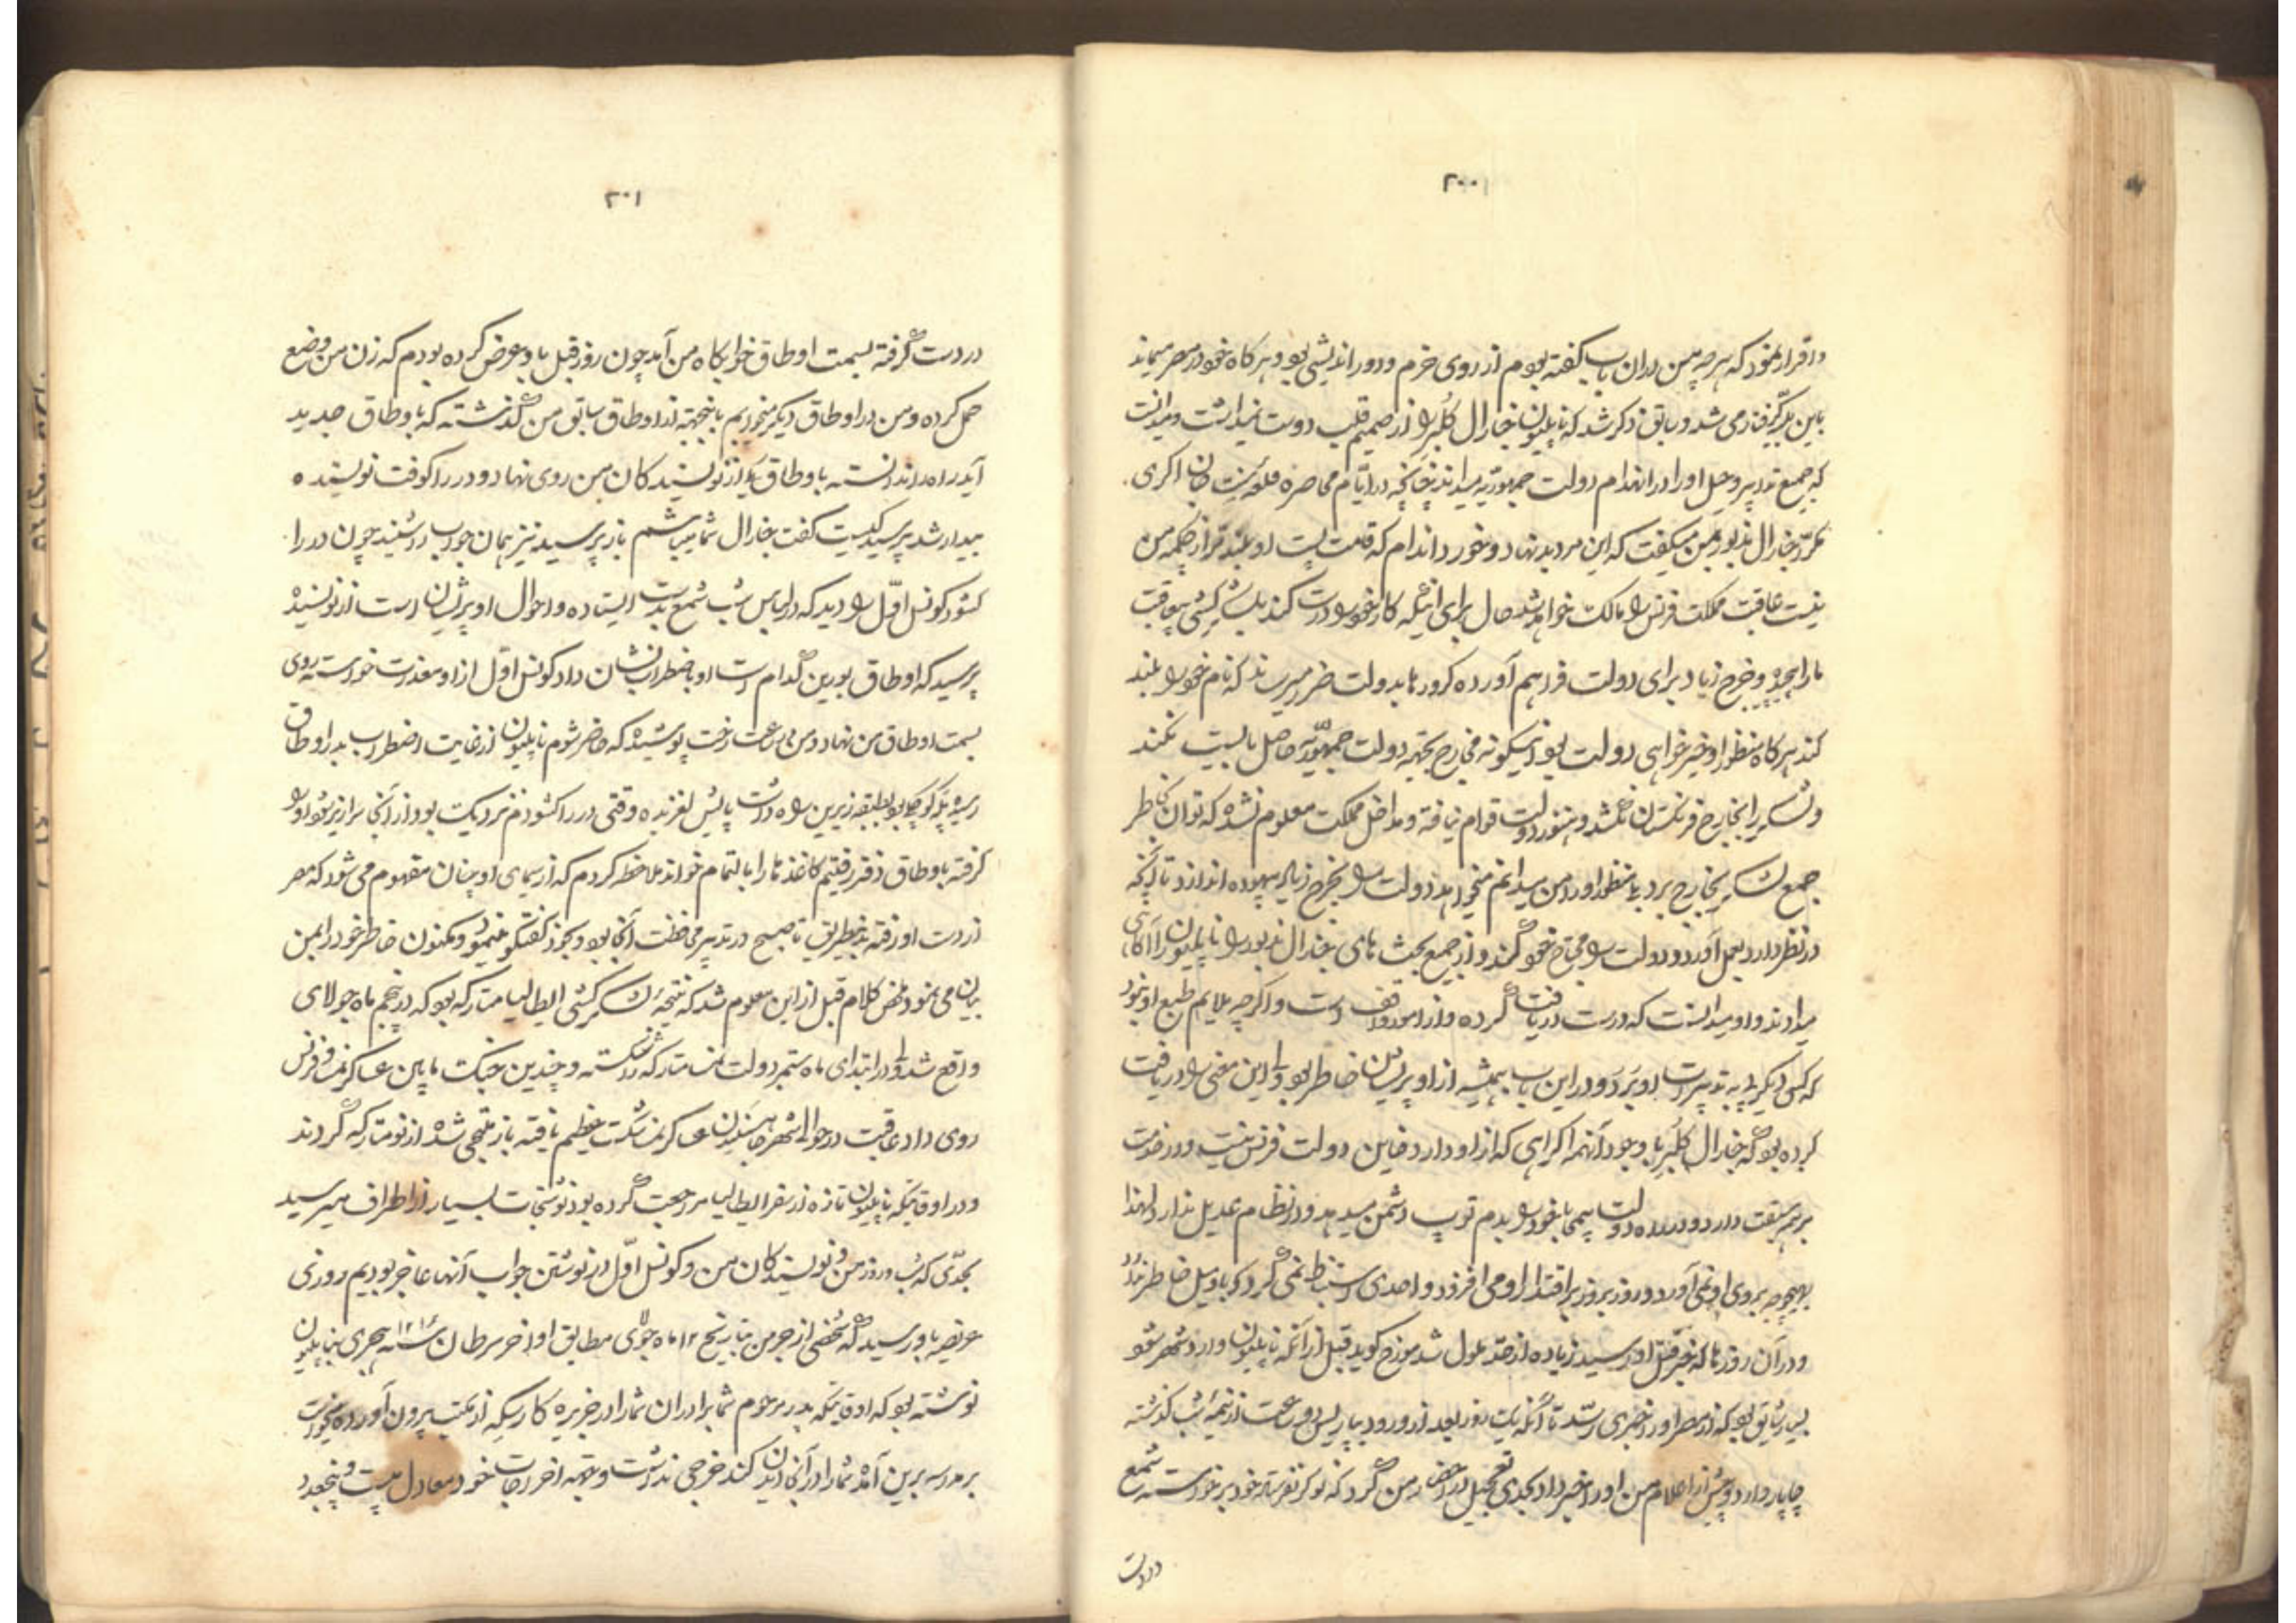 ۲۰۰
و اقرار نمود که هرچه من دران باب گفته بودم از روی حزم و دور اندیشی بود و هرگاه خود در مصر میماند
باین بلیه گرفتار می شد و سابق ذکر شد که ناپلیون جنارال کلبر را از صمیم قلب دوست نمیداشت و میدانست
که جمیع تدابیر و حیل او را در انهدام دولت جمهوریه میداند چنانچه در ایام محاصره قلعه سنت جان اکری
مکرر جنارال مذبور بمن میگفت که این مرد بد نهاد و خورد اندام که قامت پست او بلندتر از چکمه من
نیست عاقبت مملکت فرنس را مالک خواهد شد حال برای اینکه کار خود را درست کند بلشکر کشی بیعاقبت
ما را میبرد و خرج زیاد برای دولت فراهم آورده کرورها بدولت ضرر میرساند که نام خود را بلند
کند هرگاه منظور او خیرخواهی دولت بود اینگونه مخارج بجهة دولت جمهوریه حاصل بایست نکند
و لشکر را بخارج فرنگستان نکشد و هنوز دولت قوام نیافته و مداخل مملکت معلوم نشده که توان بخاطر
جمع لشکر بخارج برد منظور او را من میدانم میخواهد دولت را بخرج زیاد بیهوده اندازد تا آنکه
در نظر دارد بعمل آورد و دولت را محتاج خود کند و از جمیع بحث های جنارال مذبور را ناپلیون را آگاهی
میدادند و او میدانست که درست دریافت کرده و از امور واقف است و اگرچه ملایم طبع او نبود
که کس دیگر پی به تدبیرات او برد و در این باب همیشه از او پریشان خاطر بود ولی این معنی را دریافت
کرده بود که جنارال کلبر با وجود آنهمه اکراهی که از او دارد خاین دولت فرنس نیست و در خدمت
بر همه سبقت دارد و در راه دولت بیمحابا خود را بدم توپ دشمن میدهد و در نظام عدیل ندارد لهذا
بهیچوجه بروی او نمی آورد و روز بروز بر اقتدار او می افزود و احدی استنباط نمی کرد که با او میل خاطر ندارد
و در آن روزها که خبر قتل او رسید زیاده از حد ملول شد مورخ گوید قبل از آنکه ناپلیون وارد شهر شود
بسیار شایق بود که از مصر او را خبری رسد تا آنکه یک روز بعد از ورود بپاریس دو ساعت از نیمه شب گذشته
چاپار وارد و پیش از اعلام من او را خبر داد بحدی تعجیل در احضار من کرد که نوکر نفرستاده خود برخواسته شمع
در دست
۲۰۱
در دست گرفته بسمت اوطاق خوابگاه من آمد چون روز قبل باو عرض کرده بودم که زن من وضع
حمل کرده و من در اوطاق دیگر میخوابم باینجهة از اوطاق سابق من گذشته که باوطاق جدید
آید راه را ندانسته باوطاق یکی از نویسندگان من روی نهاد و در را کوفت نویسنده
بیدار شد پرسید کیست گفت جنارال شما میباشم باز پرسید نیز همان جواب را شنید چون در را
کشود کونسل اول را دید که در لباس شب شمع بدست ایستاده و احوال او پریشان است از نویسنده
پرسید که اوطاق بورین کدام است او باضطراب نشان داد کونسل اول از او معذرت خواسته روی
بسمت اوطاق من نهاد و من بسرعت رخت پوشیده که حاضر شوم ناپلیون از غایت اضطراب بدر اوطاق
رسیده پله کوچک بود بطبقه زیرین راه داشت پایش لغزیده وقتی در را کشودم نزدیک بود از آنجا سرازیر شود او را
گرفته باوطاق دفتر رفتیم کاغذها را بالتمام خواند ملاحظه کردم که از سیمای او چنان مفهوم می شود که مصر
از دست او رفته بدینطریق تا صبح در تدبیر محافظت آنجا بود و بجز گفتگو نمینمود و مکنون خاطر خود را بمن
بیان می نمود ملخص کلام قبل از این معلوم شد که نتیجه لشکر کشی ایطالیا متارکه بود که در پنجم ماه جولای
واقع شد ولی در ابتدای ماه سبتمبر دولت نمسا متارکه را شکسته و چندین جنگ مابین عساکر نمسا و فرنس
روی داد عاقبت در حوالی شهر هاهنلیندن عساکر نمسا شکست عظیم یافته باز ملتجی شده از نو متارکه کردند
و در اوقاتیکه ناپلیون تازه از سفر ایطالیا مراجعت کرده بود نوشتجات بسیار از اطراف میرسید
بحدی که شب و روز من و نویسندگان من و کونسل اول در نوشتن جواب آنها عاجز بودیم روزی
عریضه باو رسید که شخصی از جرمن بتاریخ ۱۲ ماه جولای مطابق اواخر سرطان سنه ۱۲۱۶ هجری بناپلیون
نوشته بود که اوقاتیکه پدر مرحوم شما برادران شما را در جزیره کارسیکه از مکتب بیرون آورده میخواست
بمدرسه برین آمده شما را در آنجا دیدن کند خرجی نداشت و بجهة اخراجات خود معادل بیست و پنجعدد